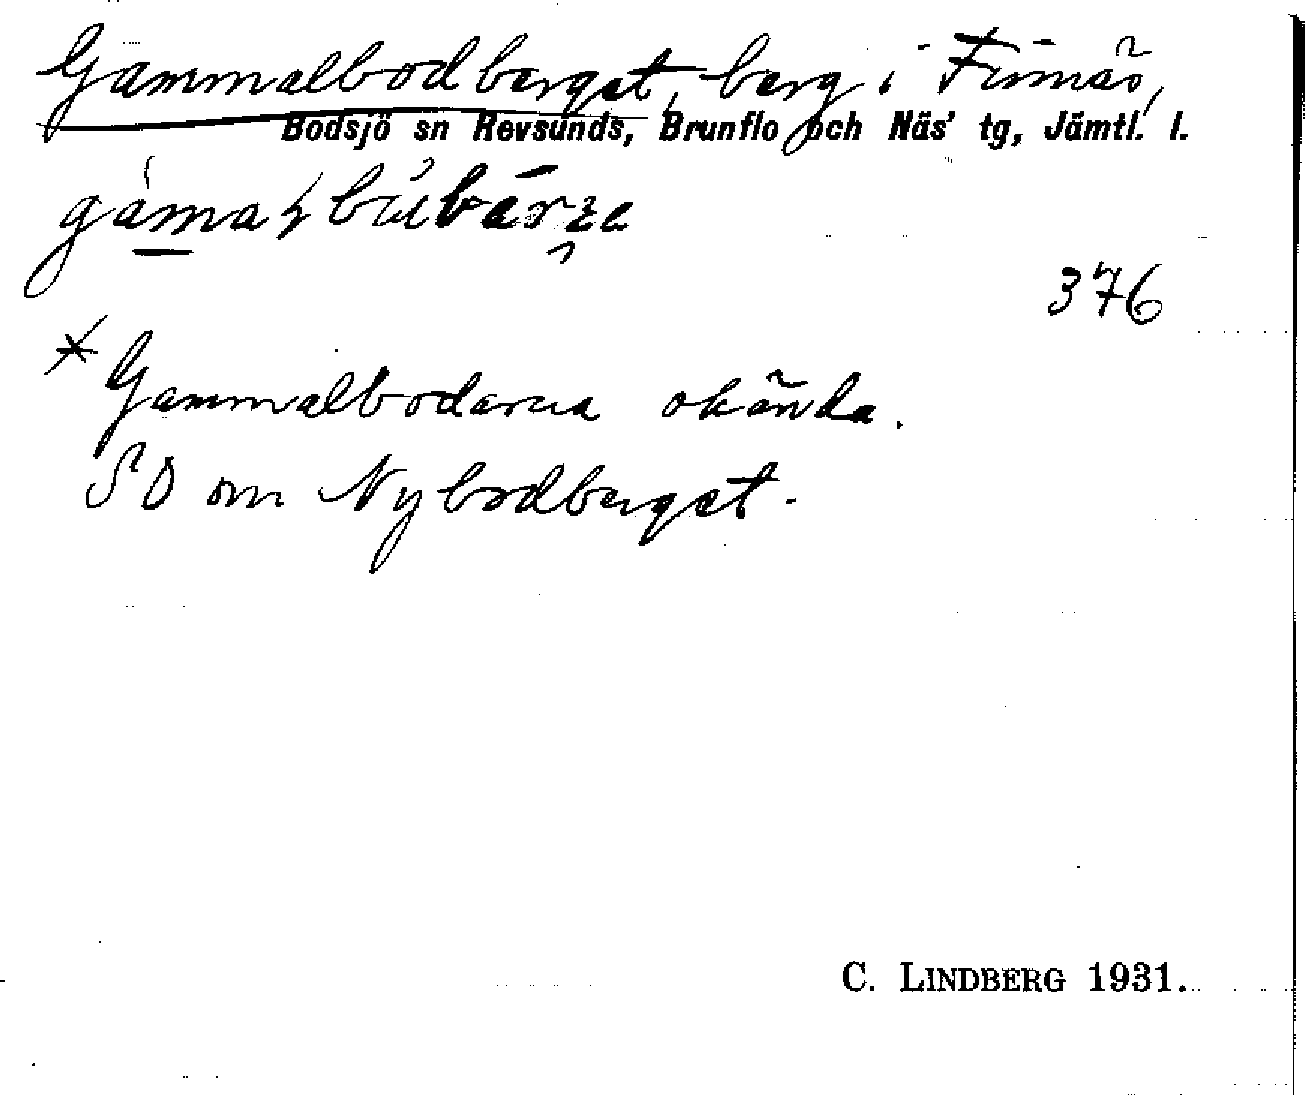 Gammalbodberget, berg i Finnäs,
Bodsjö sn Revsunds, Brunflo och Näs' tg, Jämtl. l.
376
* Gammalbodarna okända.
SO om Nybodberget.
C. LINDBERG 1931.